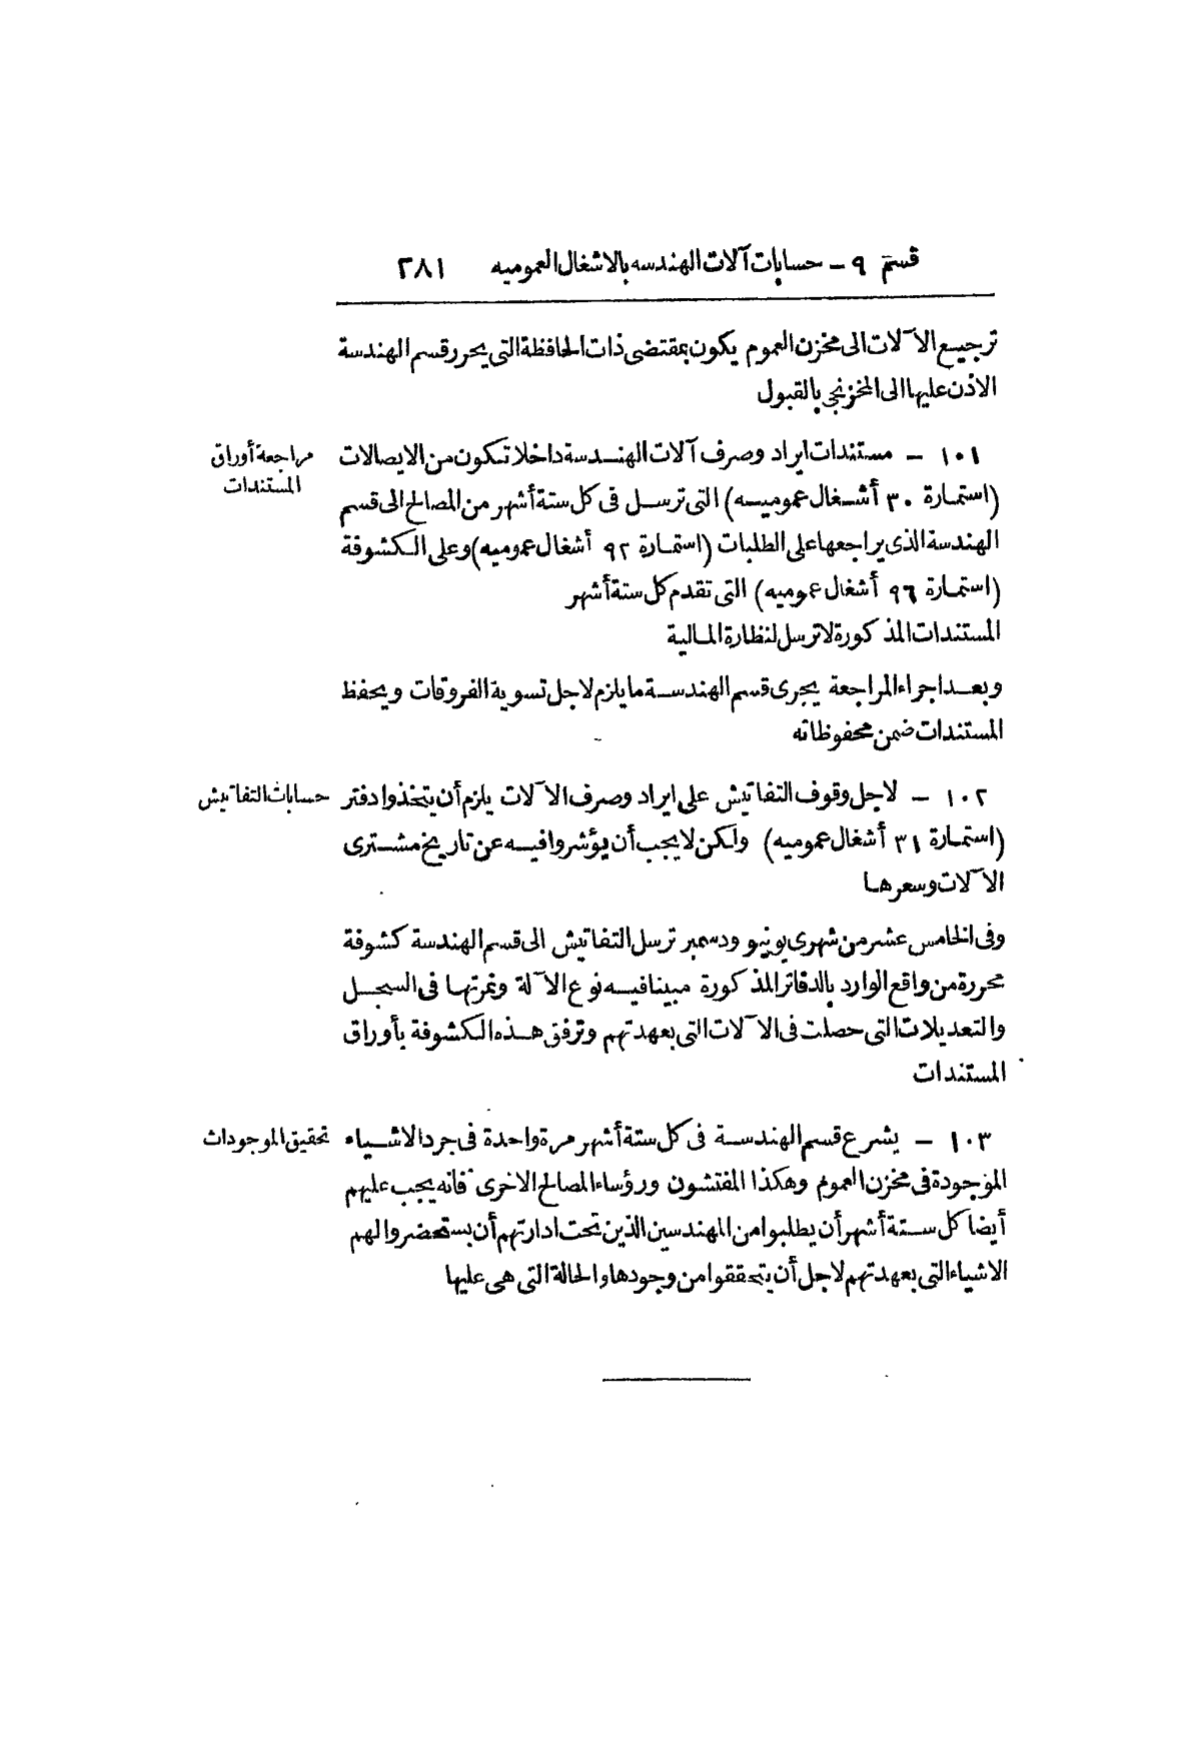 قسم ٩ – حسابات آلات الهندسه بالاشغال العموميه ٢٨١
ترجيع الآلات الى مخزن العموم يكون بمقتضى ذات الحافظة التى يحرر قسم الهندسة
الاذن عليها الى المخزنجى بالقبول
١٠١ – مستندات ايراد وصرف آلات الهندسة داخلا تتكون من الايصالات
مراجعة أوراق
المستندات
(استمارة ٣٠ أشغال عموميه) التى ترسل فى كل ستة أشهر من المصالح الى قسم
الهندسة الذى يراجعها على الطلبات (استمارة ٩٢ أشغال عموميه) وعلى الكشوفة
(استمارة ٩٦ أشغال عموميه) التى تقدم كل ستة أشهر
المستندات المذكورة لا ترسل لنظارة المالية
وبعد اجراء المراجعة يجرى قسم الهندسة ما يلزم لاجل تسوية الفروقات ويحفظ
المستندات ضمن محفوظاته
١٠٢ – لاجل وقوف التفاتيش على ايراد وصرف الآلات يلزم أن يتخذوا دفتر
حسابات التفاتيش
(استمارة ٣١ أشغال عموميه) ولكن لا يجب أن يؤشروا فيه عن تاريخ مشترى
الآلات وسعرها
وفى الخامس عشر من شهرى يونيو ودسمبر ترسل التفاتيش الى قسم الهندسة كشوفة
محررة من واقع الوارد بالدفاتر المذكورة مبينا فيه نوع الآلة ونمرتها فى السجل
والتعديلات التى حصلت فى الآلات التى بعهدتهم وترفق هذه الكشوفة بأوراق
المستندات
١٠٣ – يشرع قسم الهندسة فى كل ستة أشهر مرة واحدة فى جرد الاشياء
تحقيق الموجودات
الموجودة فى مخزن العموم وهكذا المفتشون ورؤساء المصالح الاخرى فانه يجب عليهم
أيضا كل ستة أشهر أن يطلبوا من المهندسين الذين تحت ادارتهم أن يستحضروا لهم
الاشياء التى بعهدتهم لاجل أن يتحققوا من وجودها والحالة التى هى عليها